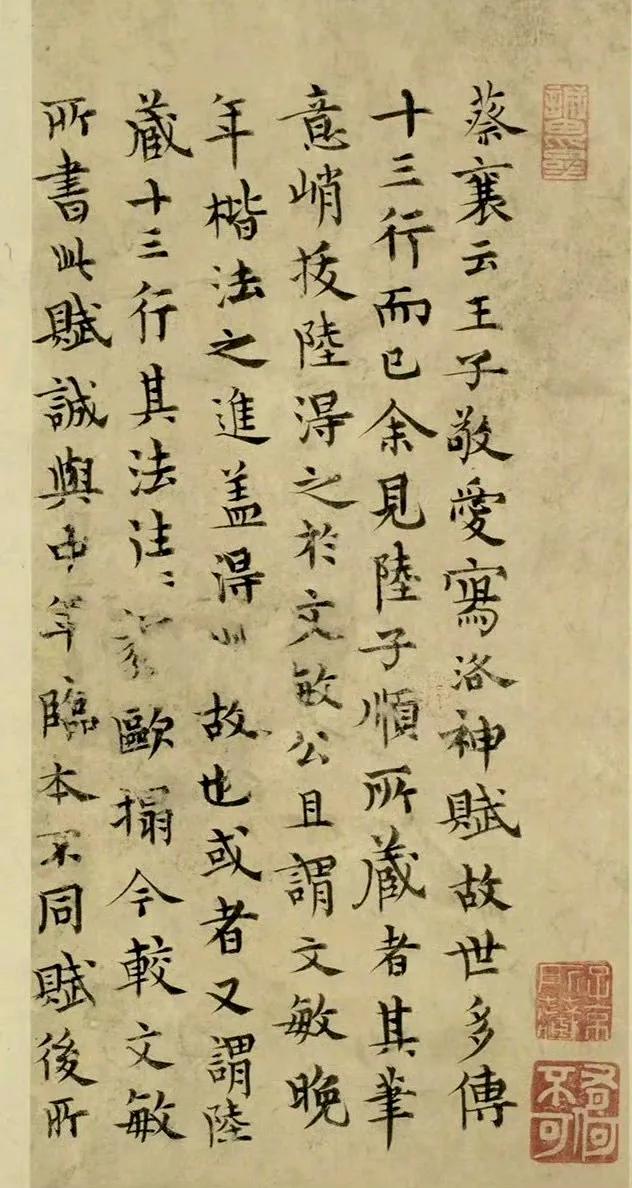 有何不可
蔡襄云王子敬愛寫洛神賦故世多傳
十三行而已余見陸子順所藏者其筆
意峭拔陸淂之於文敏公且謂文敏晚
年楷法之進盖淂此故也或者又謂陸
藏十三行其法歐搨今較文敏
所書此賦誠與中年臨本不同賦後所